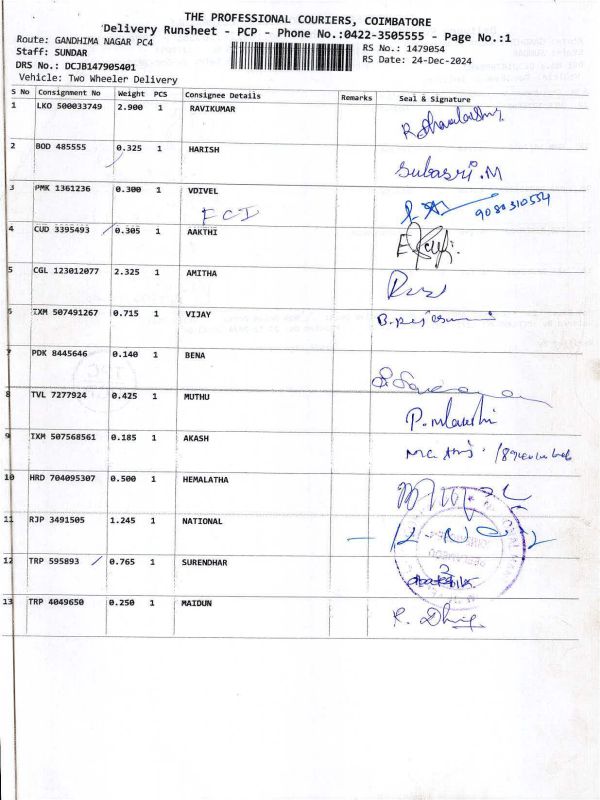 THE PROFESSIONAL COURIERS, COIMBATORE
Delivery Runsheet - PCP - Phone No.:0422-3505555 - Page No.:1
Route: GANDHIMA NAGAR PC4 RS No.: 1479054
Staff: SUNDAR RS Date: 24-Dec-2024
DRS No.: DCJB147905401
Vehicle: Two Wheeler Delivery
S No Consignment No Weight PCS Consignee Details Remarks Seal & Signature
1 LKO 500033749 2.900 1 RAVIKUMAR
2 BOD 485555 0.325 1 HARISH Subasri.M
3 PMK 1361236 0.300 1 VDIVEL 9080310554
FCI
4 CUD 3395493 0.305 1 AAKTHI
5 CGL 123012077 2.325 1 AMITHA
6 IXM 507491267 0.715 1 VIJAY
7 PDK 8445646 0.140 1 BENA
8 TVL 7277924 0.425 1 MUTHU
9 IXM 507568561 0.185 1 AKASH
10 HRD 704095307 0.500 1 HEMALATHA
11 RJP 3491505 1.245 1 NATIONAL
12 TRP 595893 0.765 1 SURENDHAR
13 TRP 4049650 0.250 1 MAIDUN